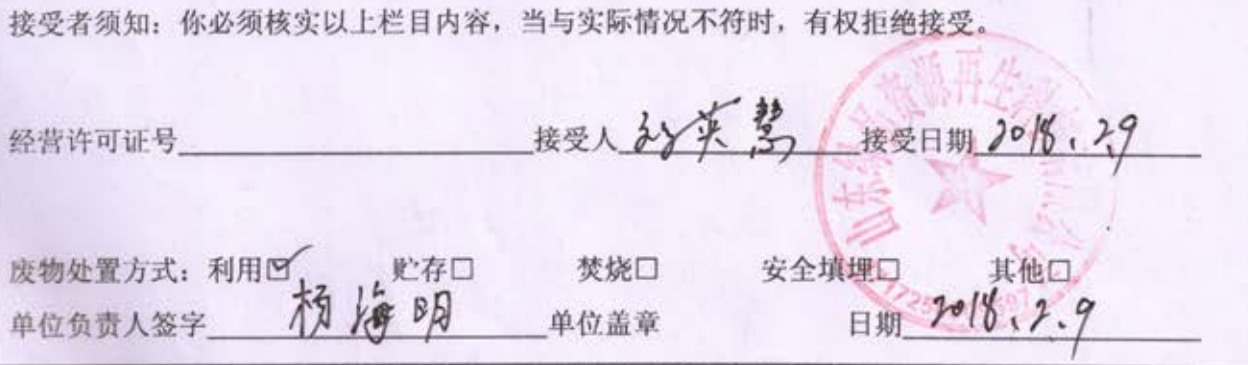 接受者须知：你必须核实以上栏目内容，当与实际情况不符时，有权拒绝接受。
经营许可证号 接受人 英慧 接受日期 2018.2.9
废物处置方式：利用☑ 贮存□ 焚烧□ 安全填埋□ 其他□
单位负责人签字 杨海明 单位盖章 日期 2018.2.9
资源再生
山东